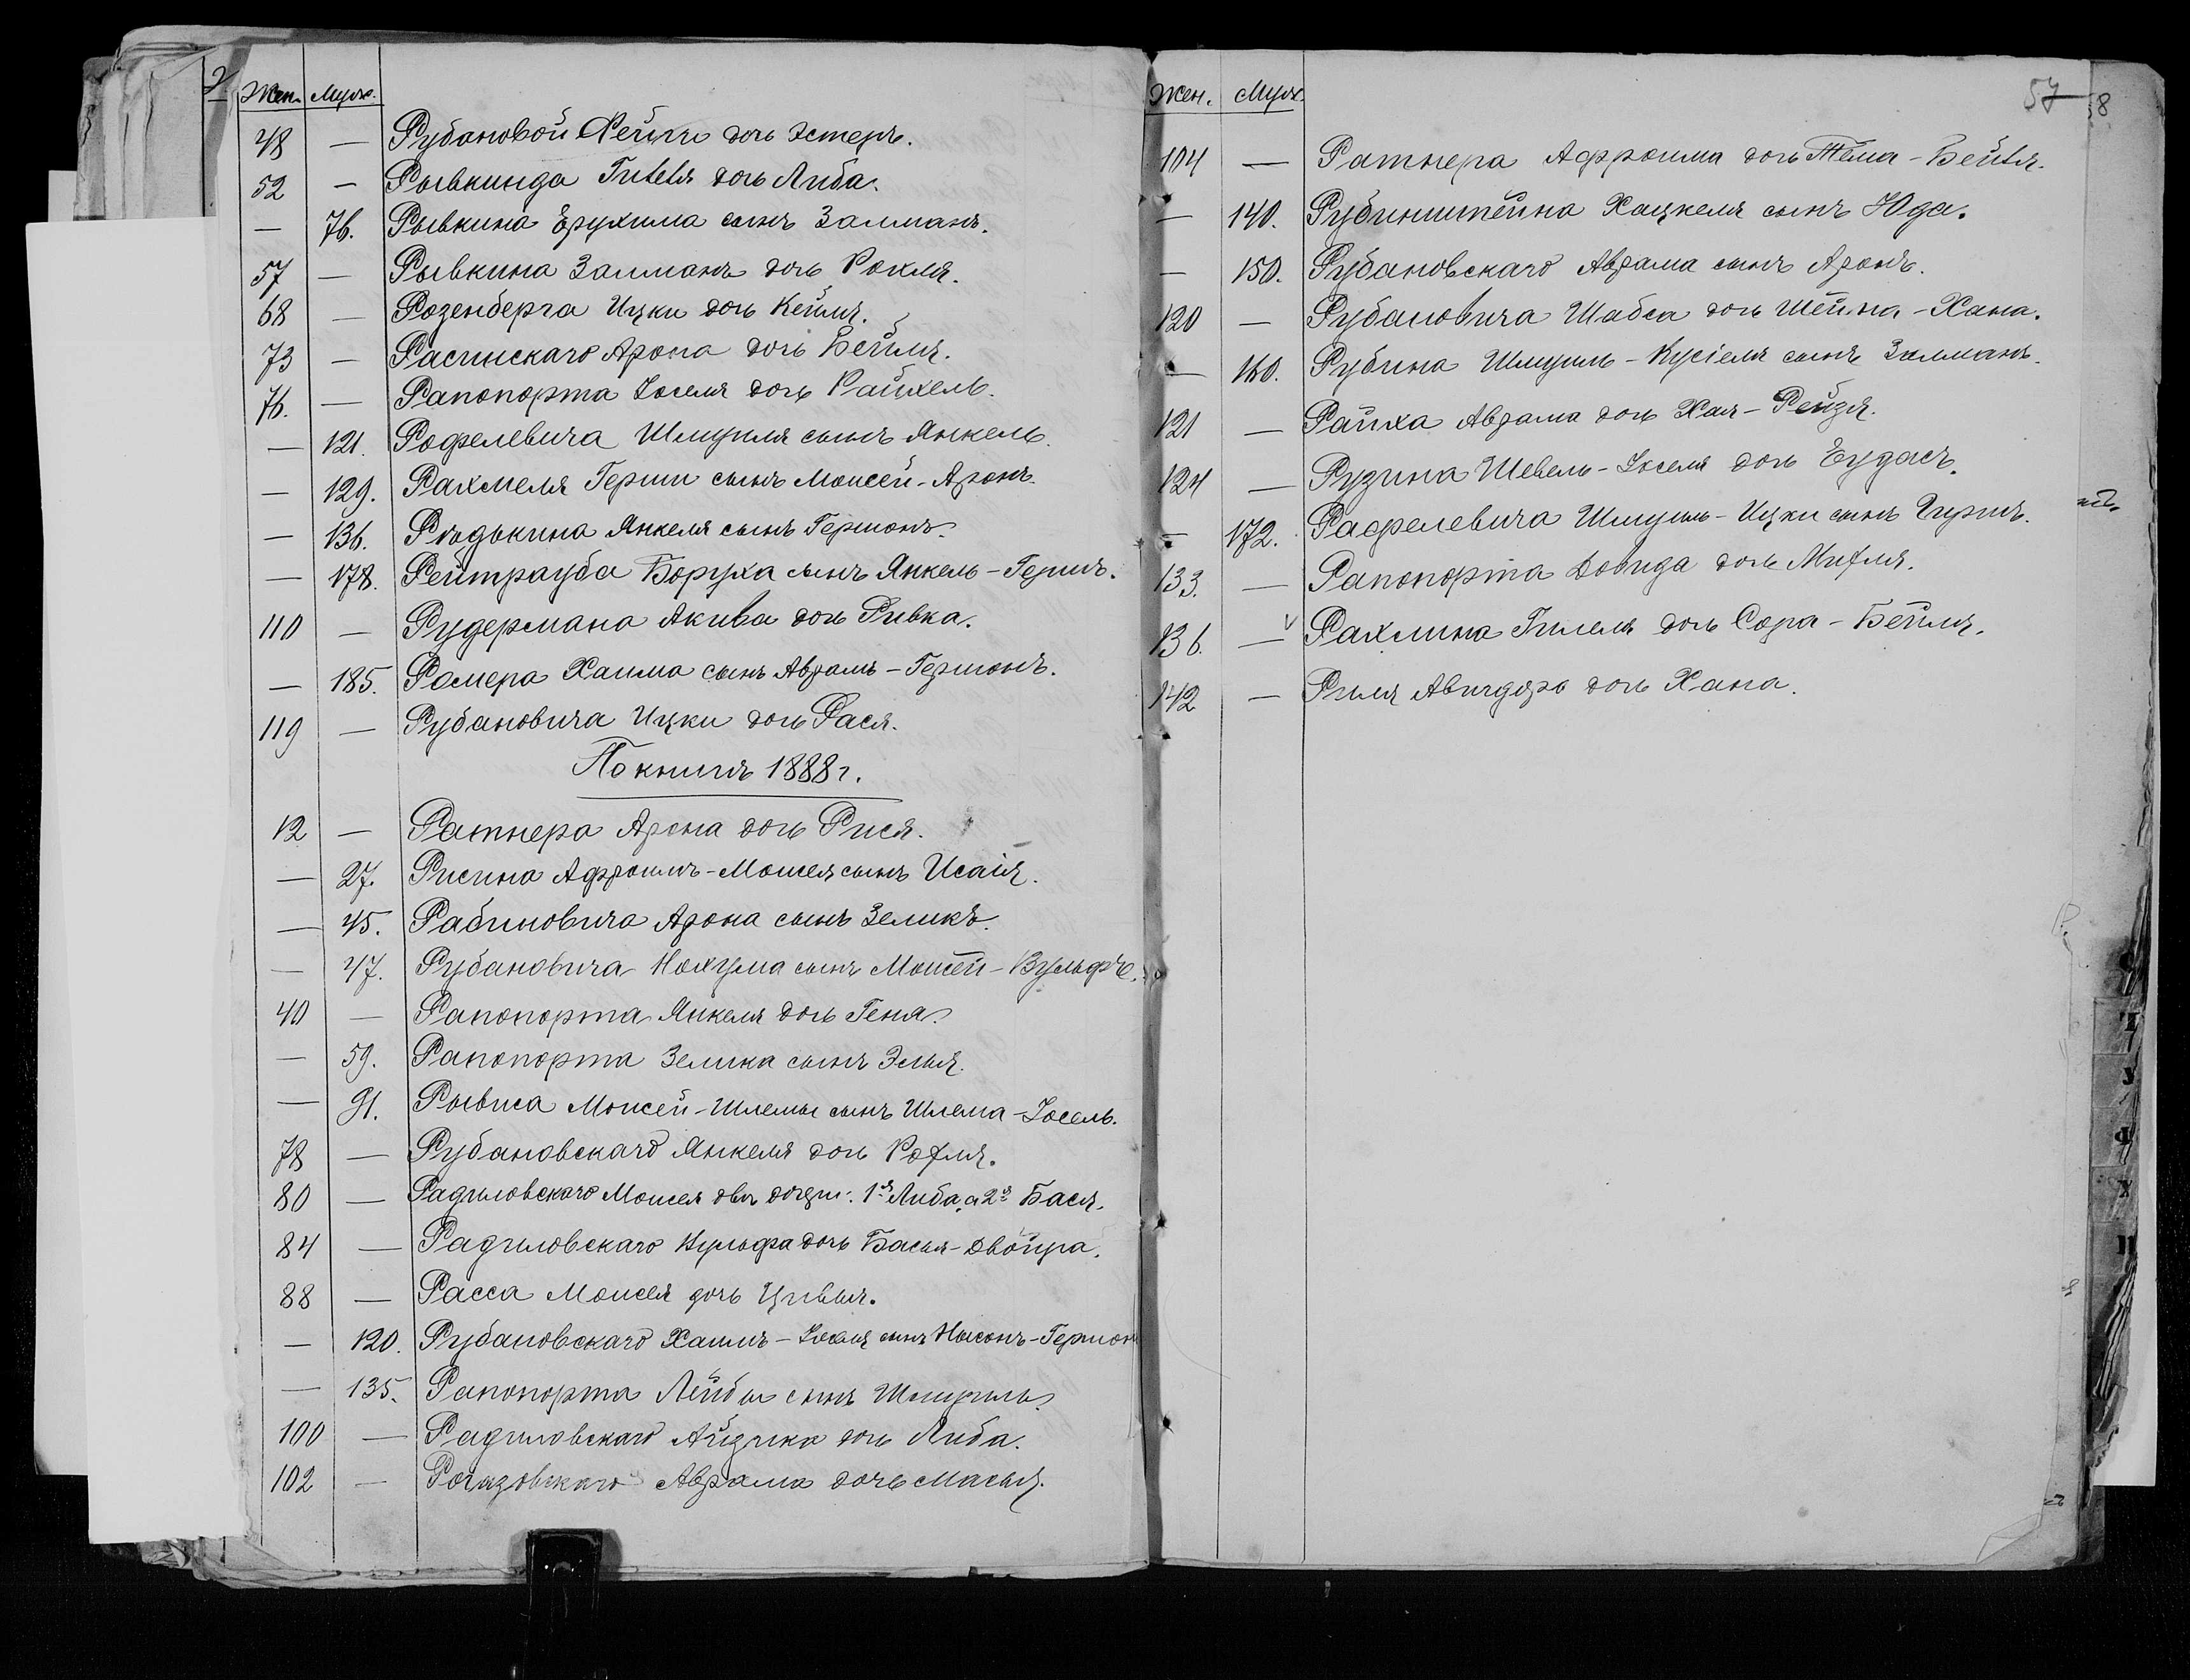 Жен. Муж.
48 — Рубановой Рейзи дочь Эстеръ.
52 — Рывкинда Гителя дочь Либа.
— 76. Рывкина Ерухима сынъ Залманъ.
57 — Рывкина Залманъ дочь Рохля.
68 — Розенберга Ицки дочь Кейля.
73 — Распискаго Арона дочь Бейля.
76. — Рапопорта Іоселя дочь Райхель.
— 121. Рофелевича Шмуиля сынъ Янкель.
— 129. Рахмеля Герши сынъ Моисей-Аронъ.
— 136. Редькина Янкеля сынъ Гершонъ.
— 178. Рейтрауба Боруха сынъ Янкель-Гершъ.
110 — Рудермана Акива дочь Ривка.
— 185. Ромера Хаима сынъ Авромъ-Гершонъ.
119 — Рубановича Ицки дочь Рася.
По книгѣ 1888 г.
12 — Ратнера Арона дочь Рися.
— 27. Рисина Афроимъ-Моисея сынъ Исаія.
— 45. Рабиновича Арона сынъ Зеликъ.
— 47. Рубановича Нохума сынъ Моисей-Вульфъ.
40 — Рапопорта Янкеля дочь Геня.
— 59. Рапопорта Зелика сынъ Элья.
— 91. Рывиса Моисей-Шлемы сынъ Шлема-Іосель.
78 — Рубановскаго Янкеля дочь Рохля.
80 — Радиловскаго Моисея двѣ дочери: 1я Либа, а 2я Бася.
84 — Радиловскаго Вульфа дочь Басья-Двойра.
88 — Расса Моисея дочь Цивья.
— 120. Рубановскаго Хаимъ- сынъ Нысонъ-Гершонъ
— 135. Рапопорта Лейбы сынъ Шмуиль.
100 — Радиловскаго Айзика дочь Либа.
102 — Рогазовскаго Аврама дочь Масья.
Жен. Муж.
57 58
104 — Ратнера Афроима дочь Тема-Бейля.
— 140. Рубинштейна Хацкеля сынъ Юда.
— 150. Рубановскаго Аврама сынъ Аронъ.
120 — Рубановича Шабса дочь Шейна-Хана.
— 160. Рубина Шмуиль-Кусіеля сынъ Залманъ.
121 — Райха Аврама дочь Хая-Рейзя.
124 — Рузина Шевель-Іоселя дочь Еудасъ.
— 172. Рафелевича Шмуиль-Ицки сынъ Гиршъ.
133. — Рапопорта Довида дочь Михля.
136. — Рахлина Гилеля дочь Сора-Бейля.
142 — Риля Авигдора дочь Хана.
Т
У
Ф
Х
Ц